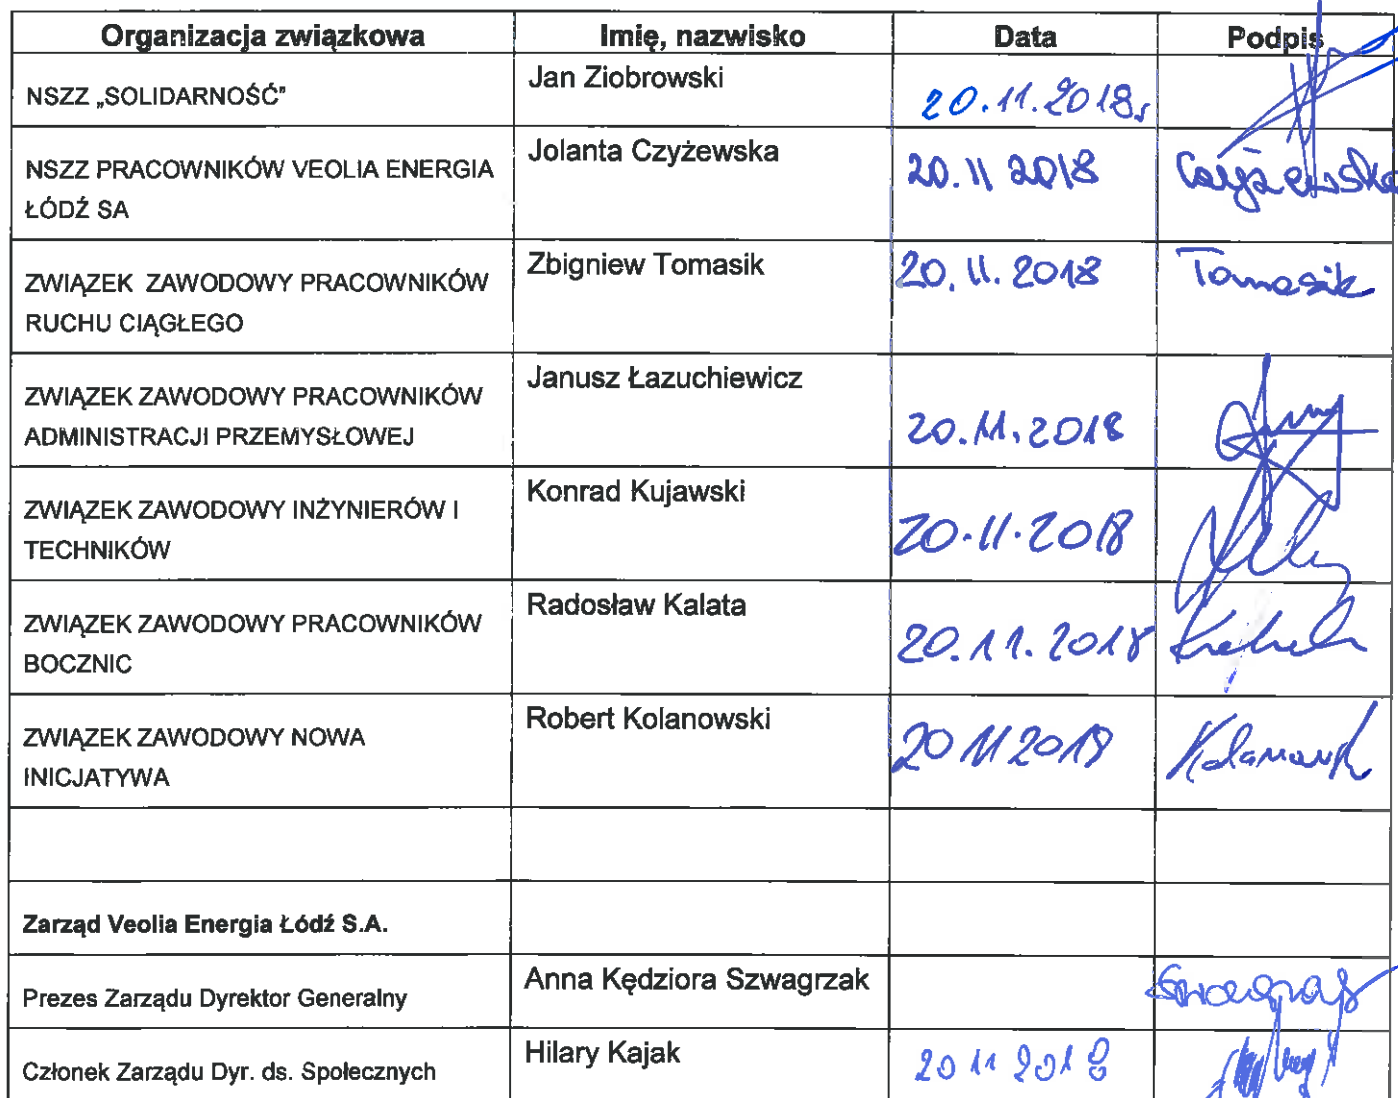 Organizacja związkowa Imię, nazwisko Data Podpis
NSZZ „SOLIDARNOŚĆ” Jan Ziobrowski 20.11.2018r
NSZZ PRACOWNIKÓW VEOLIA ENERGIA
ŁÓDŹ SA Jolanta Czyżewska 20.11 2018 Czyżewska
ZWIĄZEK ZAWODOWY PRACOWNIKÓW
RUCHU CIĄGŁEGO Zbigniew Tomasik 20.11.2018 Tomasik
ZWIĄZEK ZAWODOWY PRACOWNIKÓW
ADMINISTRACJI PRZEMYSŁOWEJ Janusz Łazuchiewicz 20.11.2018
ZWIĄZEK ZAWODOWY INŻYNIERÓW I
TECHNIKÓW Konrad Kujawski 20.11.2018
ZWIĄZEK ZAWODOWY PRACOWNIKÓW
BOCZNIC Radosław Kalata 20.11.2018
ZWIĄZEK ZAWODOWY NOWA
INICJATYWA Robert Kolanowski 20 11 2018
Zarząd Veolia Energia Łódź S.A.
Prezes Zarządu Dyrektor Generalny Anna Kędziora Szwagrzak
Członek Zarządu Dyr. ds. Społecznych Hilary Kajak 20 11 2018